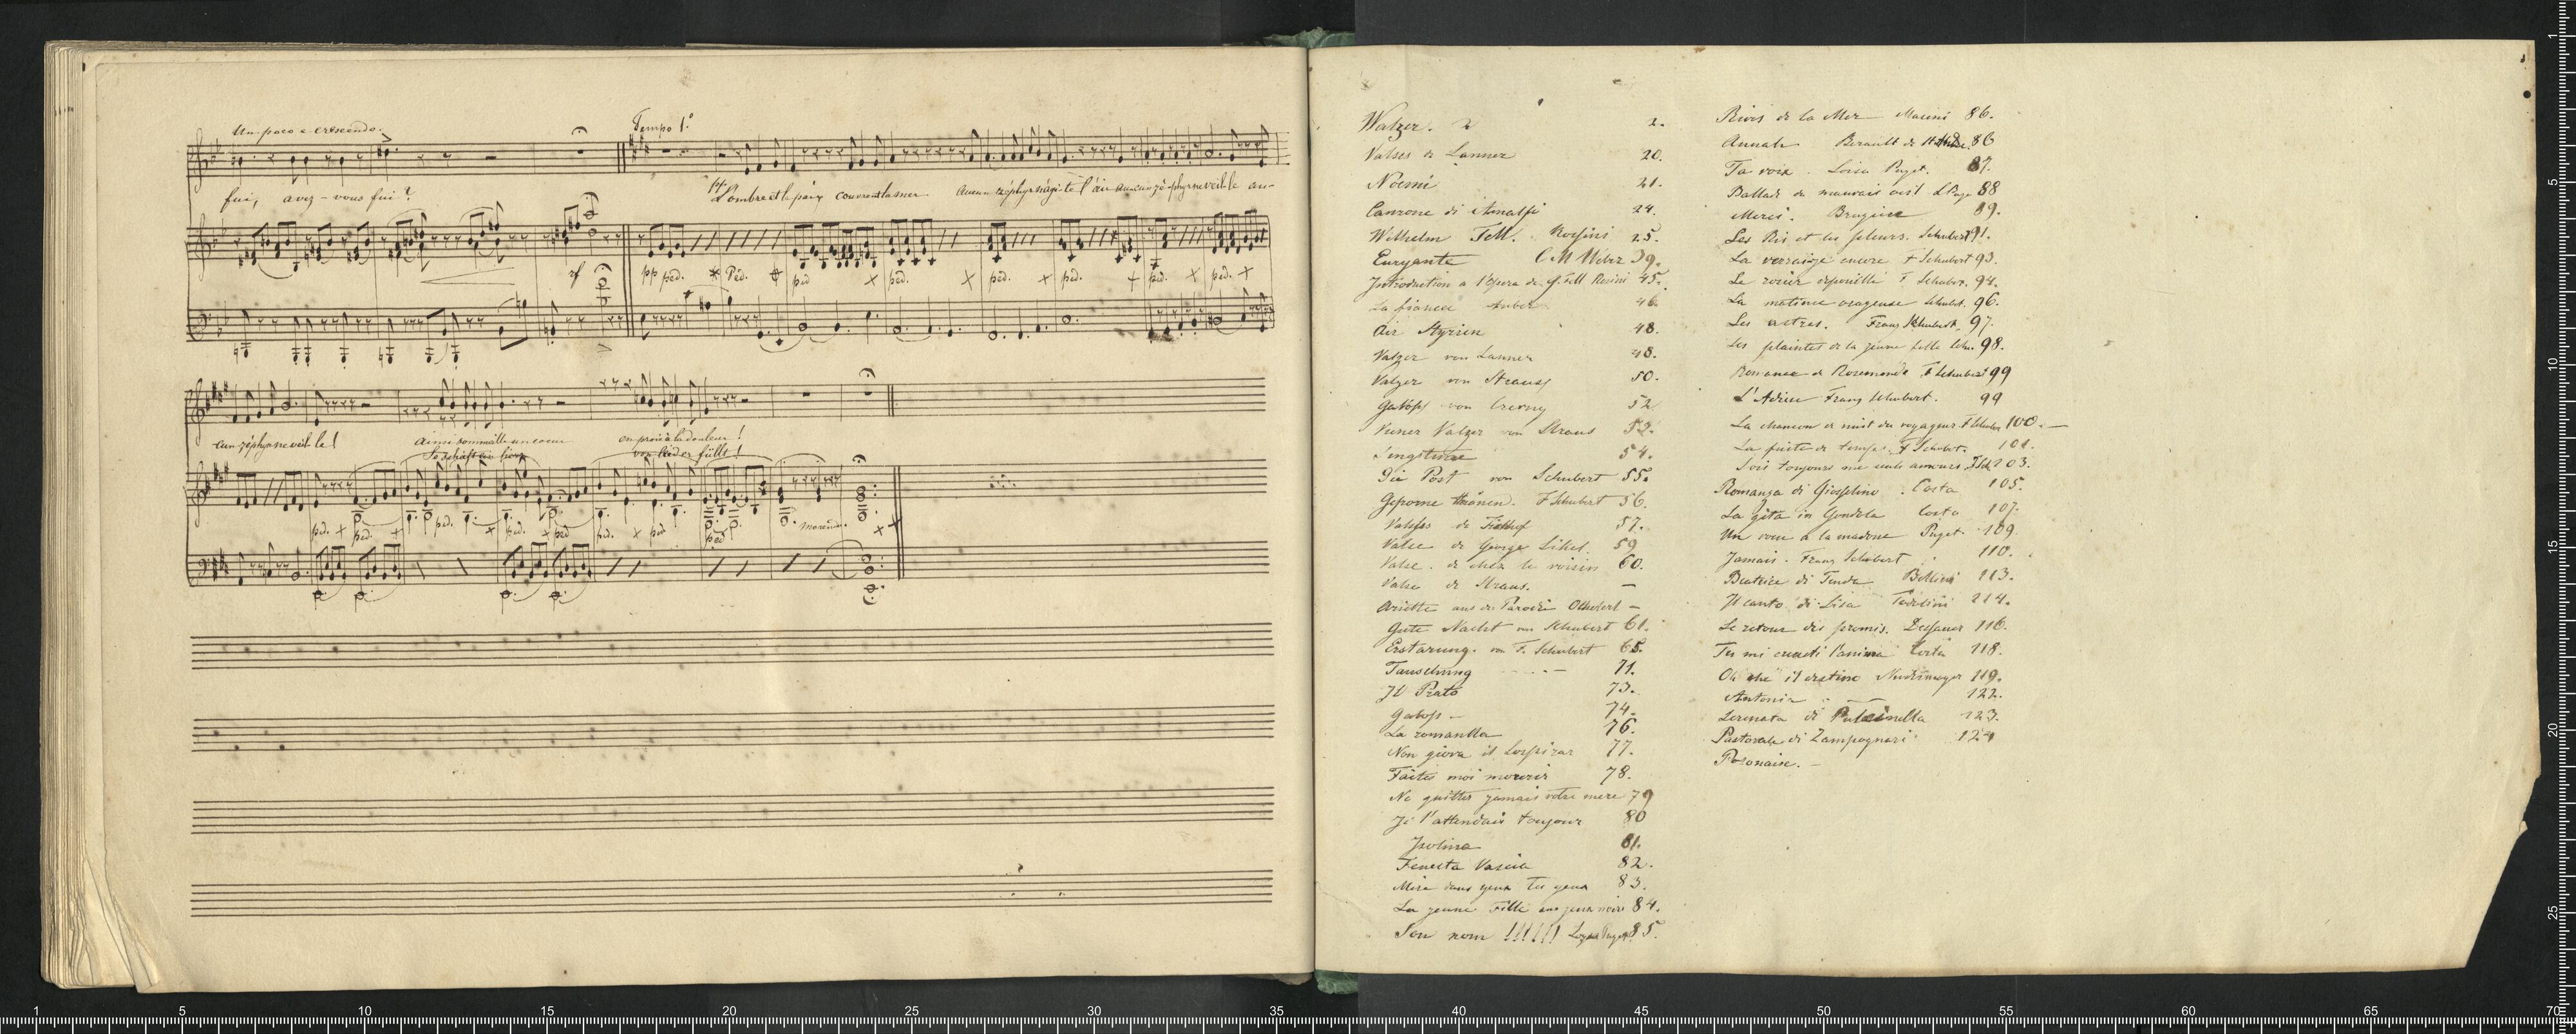 Un poco e crescendo.
Tempo 1.º
fui, avez-vous fui?
pp L'ombre et la paix couvrent la mer Aucun zéphyr n'agite l'air Aucun zéphyr n'éveille au-
rf
pp ped. * Ped. ped ped. ped. ped. ped. ped.
cun zéphyr n'éveille!
ainsi sommeille un coeur en proie à la douleur!
So schäft ein herz von Leid er füllt!
ped. ped. ped. ped. ped ped. ped ped morendo.
Walzer. 2 2.
Valses de Lanner 20.
Noemi 21.
Canzone di Amalfi 24.
Wilhelm Tell. Rossini 25.
Euryante C M Weber 39.
Introduction a l'Opera de G. Tell Rosini 45.
La fiancee Auber 46
Air Styrien 48.
Valzer von Lanner 48.
Valzer von Strauss 50.
Galopp von Czerny 52
Wiener Valzer von Straus 52.
54.
Die Post von Schubert 55.
Gefrorne thränen. F Schubert 56.
Valses de 57.
Valse de George Likel. 59
Valse. de chez le voisin 60.
Valse de Straus. —
Ariette aus der Parodie Othellerl —
Gute Nacht von Schubert 61.
Erstarung. von F. Schubert 65.
Tauschung - - - - 71.
Il Prato 73.
Galop - 74.
La romanella 76.
Non giova il sospirar 77.
Faites moi mourir 78.
Ne quitter jamais votre mere 79
Je l'attendais toujour 80
Isolina 81.
Fenesta Vascia 82.
Mire dans yeux tes yeux 83.
La jeune Fille aux yeux noirs 84.
Son nom !!!!!! Loysa Puget 85.
Rives de la Mer Masini 86.
Annah Berault de St 86
Ta voix. Loisa Puget. 87.
Ballade du mauvais oeil L Puge 88
Merci. Brugiere 89.
Les Ris et les pleurs. Schubert 91.
La verraije encore F Schubert 93.
Le rosier depouillé F Schuber. 94.
La matinee orageuse Schubt. 96.
Les astres. Franz Schubert. 97.
Les plaintes de la jeune fille Schu. 98.
Romance de Rosemonde F. Schubert 99
L'Adieu Franz Schubert. 99
La chanson de nuit du voyageur F Schuber 100. —
La fuite du temps. F Schubert. 101.
Sois toujours mes seuls amours F Sch 103.
Romanza di Gioffelino. Costa 105.
La gita in Gondola Costa 107.
Un voeu à la madone Puget. 109.
Jamais. Franz Schubert 110.
Beatrice di Tenda Bellini 113.
Il canto di Lisa Tadolini 114.
Le retour des promis. Dessauer 116.
Tu mi creasti l'anima Costa 118.
Oh che il destino Niedermeyer 119.
Antonia - — 122.
Serenata di Pulcinella 123.
Pastorale di Zampognari 124
Polonaise. —